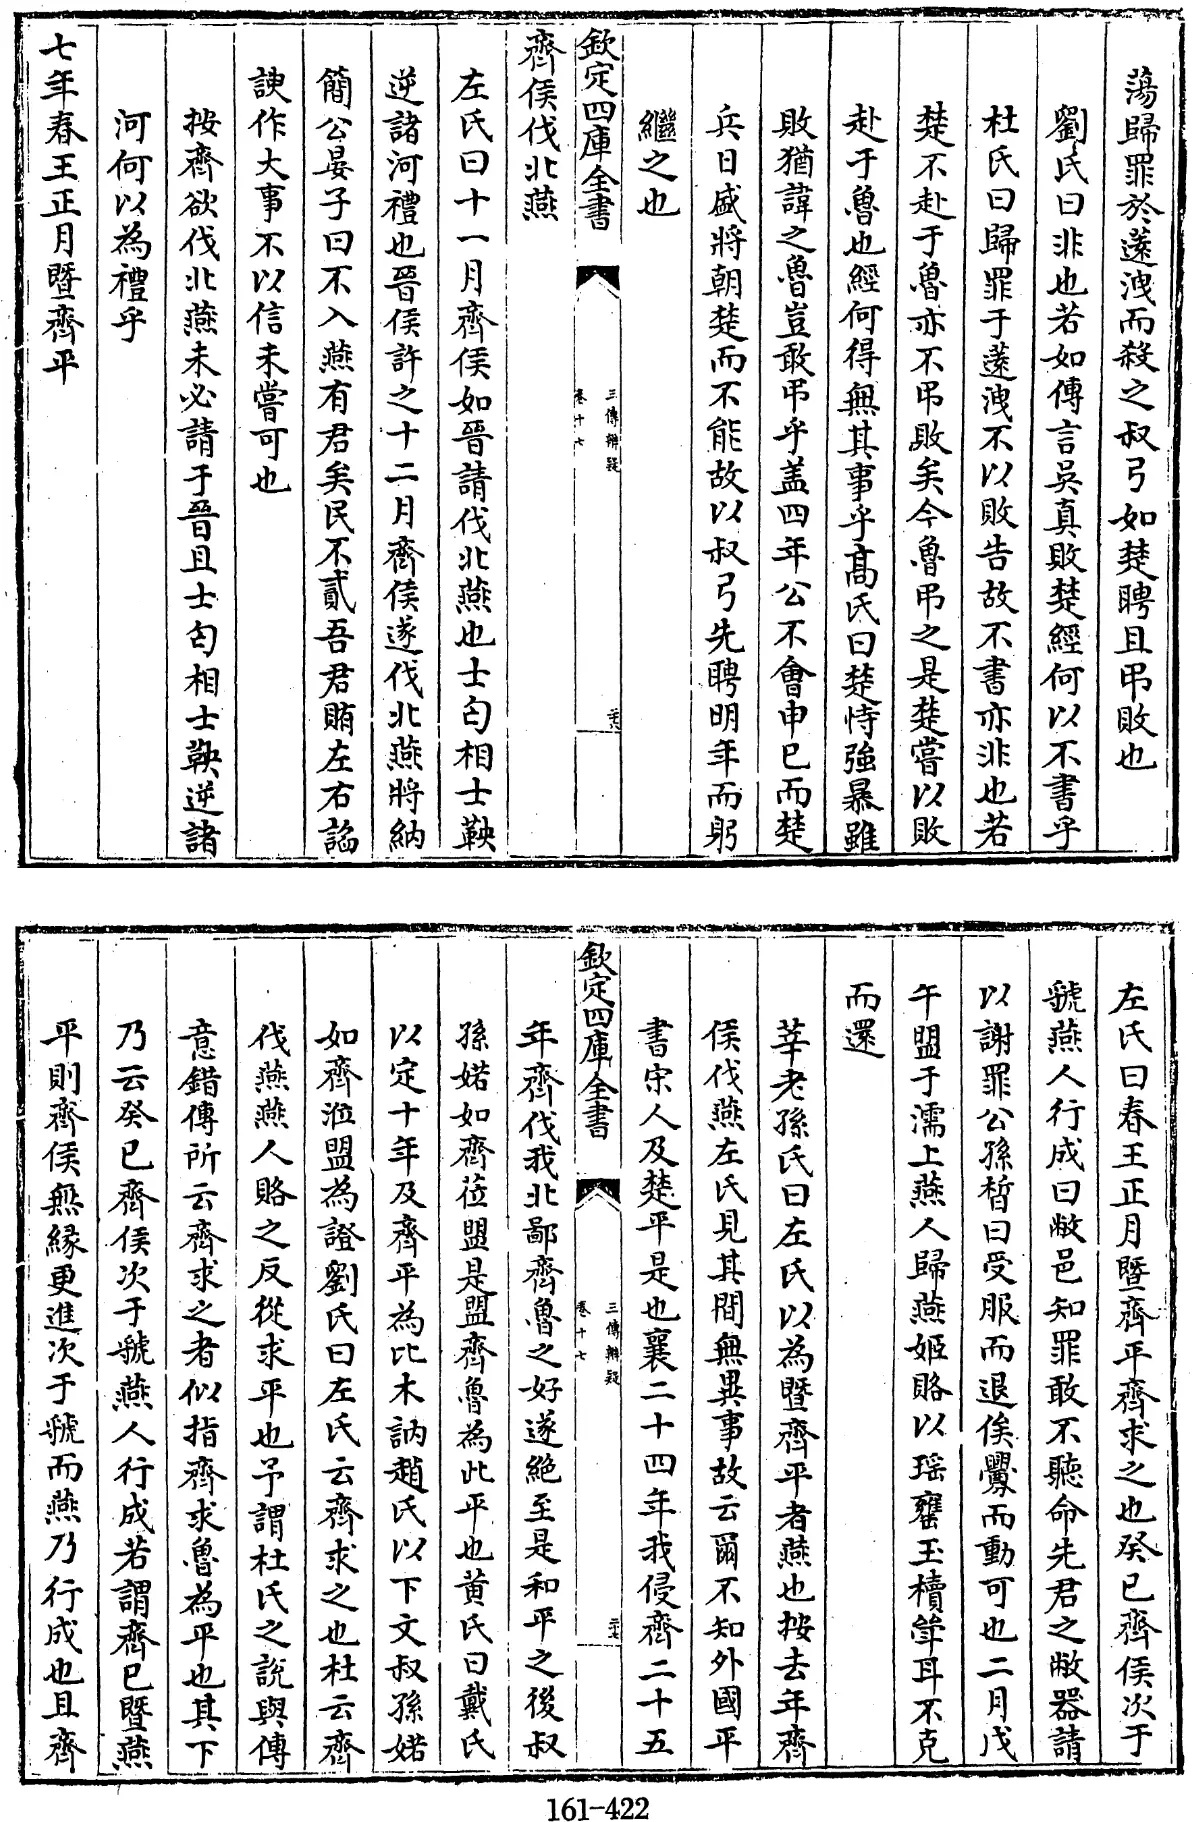 蕩歸罪於薳洩而殺之叔弓如楚聘且弔敗也
劉氏曰非也若如傳言吳真敗楚經何以不書乎
杜氏曰歸罪于薳洩不以敗告故不書亦非也若
楚不赴于魯亦不弔敗矣今魯弔之是楚嘗以敗
赴于魯也經何得無其事乎髙氏曰楚恃強暴雖
敗猶諱之魯豈敢弔乎盖四年公不會申已而楚
兵日盛將朝楚而不能故以叔弓先聘明年而躬
繼之也
欽定四庫全書
三傳辨疑
卷十七
二六
齊侯伐北燕
左氏曰十一月齊侯如晉請伐北燕也士匄相士鞅
逆諸河禮也晉侯許之十二月齊侯遂伐北燕將納
簡公晏子曰不入燕有君矣民不貳吾君賄左右諂
諛作大事不以信未嘗可也
按齊欲伐北燕未必請于晉且士匄相士鞅逆諸
河何以為禮乎
七年春王正月暨齊平
左氏曰春王正月暨齊平齊求之也癸已齊侯次于
虢燕人行成曰敝邑知罪敢不聽命先君之敝器請
以謝罪公孫晳曰受服而退俟釁而動可也二月戊
午盟于濡上燕人歸燕姬賂以瑤罋玉櫝斝耳不克
而還
莘老孫氏曰左氏以為暨齊平者燕也按去年齊
侯伐燕左氏見其間無異事故云爾不知外國平
書宋人及楚平是也襄二十四年我侵齊二十五
欽定四庫全書
三傳辨疑
卷十七
二七
年齊伐我北鄙齊魯之好遂絶至是和平之後叔
孫婼如齊莅盟是盟齊魯為此平也黄氏曰戴氏
以定十年及齊平為比木訥趙氏以下文叔孫婼
如齊涖盟為證劉氏曰左氏云齊求之也杜云齊
伐燕燕人賂之反從求平也予謂杜氏之說與傳
意錯傳所云齊求之者似指齊求魯為平也其下
乃云癸已齊侯次于虢燕人行成若謂齊已暨燕
平則齊侯無緣更進次于虢而燕乃行成也且齊
161-422